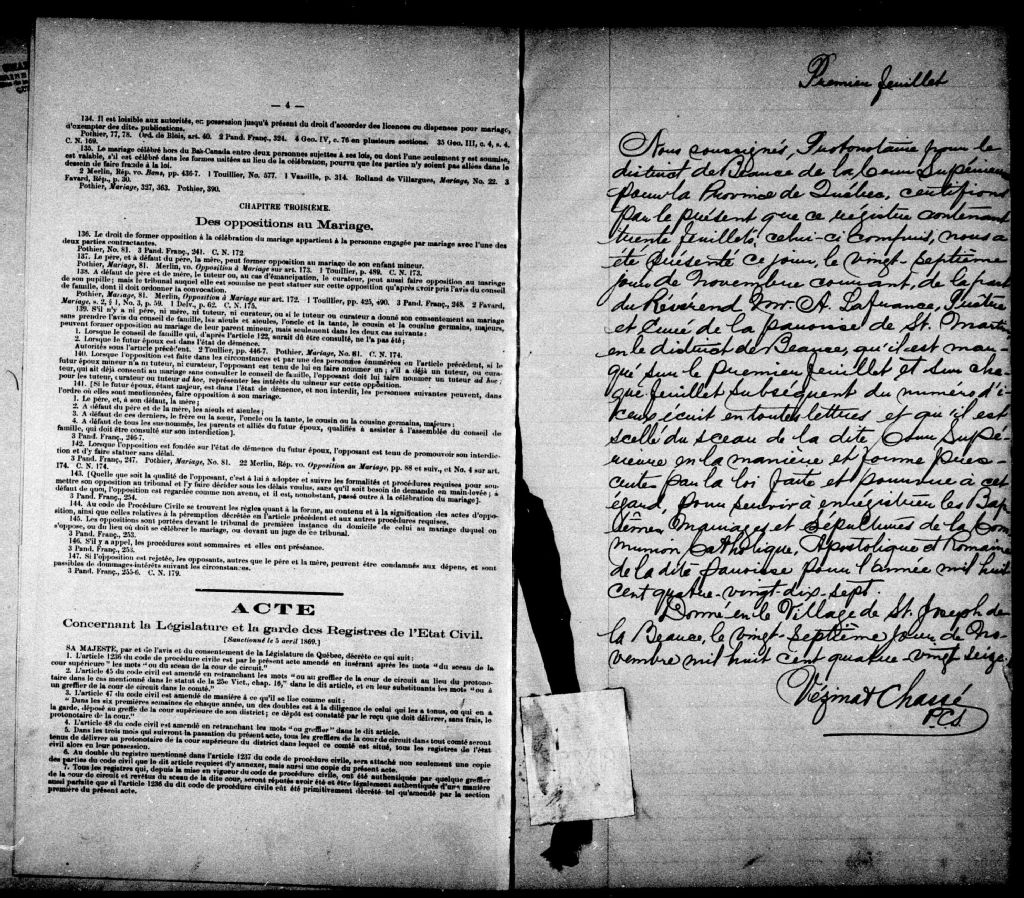 — 4 —
134. Il est loisible aux autorités, en possession jusqu'à présent du droit d'accorder des licences ou dispenses pour mariage,
d'exempter des dites publications.
Pothier, 77, 78. Ord. de Blois, art. 40. 2 Pand. Franç., 324. 4 Geo. IV, c. 76 en plusieurs sections. 35 Geo. III, c. 4, s. 4.
C. N. 169.
135. Le mariage célébré hors du Bas-Canada entre deux personnes sujettes à ses lois, ou dont l'une seulement y est soumise,
est valable, s'il est célébré dans les formes usitées au lieu de la célébration, pourvu que les parties n'y soient pas allées dans le
dessein de faire fraude à la loi.
2 Merlin, Rép. vo. Bans, pp. 436-7. 1 Touillier, No. 577. 1 Vazeille, p. 314. Rolland de Villargues, Mariage, No. 22. 3
Favard, Rép., p. 30.
Pothier, Mariage, 327, 363. Pothier, 390.
CHAPITRE TROISIÈME.
Des oppositions au Mariage.
136. Le droit de former opposition à la célébration du mariage appartient à la personne engagée par mariage avec l'une des
deux parties contractantes.
Pothier, No. 81. 3 Pand. Franç., 241. C. N. 172.
137. Le père, et à défaut du père, la mère, peut former opposition au mariage de son enfant mineur.
Pothier, Mariage, 81. Merlin, vo. Opposition à Mariage sur art. 173. 1 Touillier, p. 489. C. N. 173.
138. A défaut de père et de mère, le tuteur ou, au cas d'émancipation, le curateur, peut aussi faire opposition au mariage
de son pupille; mais le tribunal auquel elle est soumise ne peut statuer sur cette opposition qu'après avoir pris l'avis du conseil
de famille, dont il doit ordonner la convocation.
Pothier, Mariage, 81. Merlin, Opposition à Mariage sur art. 172. 1 Touillier, pp. 425, 490. 3 Pand. Franç., 248. 2 Favard,
Mariage, s. 2, § 1, No. 3, p. 59. 1 Delv., p. 62. C. N. 175.
139. S'il n'y a ni père, ni mère, ni tuteur, ni curateur, ou si le tuteur ou curateur a donné son consentement au mariage
sans prendre l'avis du conseil de famille, les aïeuls et aïeules, l'oncle et la tante, le cousin et la cousine germains, majeurs,
peuvent former opposition au mariage de leur parent mineur, mais seulement dans les deux cas suivants:
1. Lorsque le conseil de famille qui, d'après l'article 122, aurait dû être consulté, ne l'a pas été;
2. Lorsque le futur époux est dans l'état de démence.
Autorités sous l'article précédent. 2 Toullier, pp. 446-7. Pothier, Mariage, No. 81. C. N. 174.
140. Lorsque l'opposition est faite dans les circonstances et par une des personnes énumérées en l'article précédent, si le
futur époux mineur n'a ni tuteur, ni curateur, l'opposant est tenu de lui en faire nommer un; s'il a déjà un tuteur, ou cura-
teur, qui ait déjà consenti au mariage sans consulter le conseil de famille, l'opposant doit lui faire nommer un tuteur ad hoc;
pour les tuteur, curateur ou tuteur ad hoc, représenter les intérêts du mineur sur cette opposition.
141. [Si le futur époux, étant majeur, est dans l'état de démence, et non interdit, les personnes suivantes peuvent, dans
l'ordre où elles sont mentionnées, faire opposition à son mariage.
1. Le père, et à son défaut, la mère;
2. A défaut du père et de la mère, les aïeuls et aïeules;
3. A défaut de ces derniers, le frère ou la sœur, l'oncle ou la tante, le cousin ou la cousine germains, majeurs;
4. A défaut de tous les sus-nommés, les parents et alliés du futur époux, qualifiés à assister à l'assemblée du conseil de
famille, qui doit être consulté sur son interdiction].
3 Pand. Franç., 246-7.
142. Lorsque l'opposition est fondée sur l'état de démence du futur époux, l'opposant est tenu de promouvoir son interdic-
tion et d'y faire statuer sans délai.
3 Pand. Franç., 247. Pothier, Mariage, No. 81. 22 Merlin, Rép. vo. Opposition au Mariage, pp. 88 et suiv., et No. 4 sur art.
174. C. N. 174.
143. [Quelle que soit la qualité de l'opposant, c'est à lui à adopter et suivre les formalités et procédures requises pour sou-
mettre son opposition au tribunal et l'y faire décider sous les délais voulus, sans qu'il soit besoin de demande en main-levée; à
défaut de quoi, l'opposition est regardée comme non avenu, et il est, nonobstant, passé outre à la célébration du mariage].
3 Pand. Franç., 254.
144. Au code de Procédure Civile se trouvent les règles quant à la forme, au contenu et à la signification des actes d'oppo-
sition, ainsi que celles relatives à la péremption décrétée en l'article précédent et aux autres procédures requises.
145. Les oppositions sont portées devant le tribunal de première instance du domicile de celui au mariage duquel on
s'oppose, ou du lieu où doit se célébrer le mariage, ou devant un juge de ce tribunal.
3 Pand. Franç., 253.
146. S'il y a appel, les procédures sont sommaires et elles ont préséance.
3 Pand. Franç., 253.
147. Si l'opposition est rejetée, les opposants, autres que le père et la mère, peuvent être condamnés aux dépens, et sont
passibles de dommages-intérêts suivant les circonstances.
3 Pand. Franç., 255-6. C. N. 179.
ACTE
Concernant la Législature et la garde des Registres de l'Etat Civil.
[Sanctionné le 5 avril 1869.]
SA MAJESTÉ, par et de l'avis et du consentement de la Législature de Québec, décrète ce qui suit:
1. L'article 1236 du code de procédure civile est par le présent acte amendé en insérant après les mots "du sceau de la
cour supérieure" les mots "ou du sceau de la cour de circuit."
2. L'article 45 du code civil est amendé en retranchant les mots "ou au greffier de la cour de circuit au lieu du protono-
taire dans le cas mentionné dans le statut de la 25e Vict., chap. 16," dans le dit article, et en leur substituants les mots "ou à
un greffier de la cour de circuit dans le comté."
3. L'article 47 du code civil est amendé de manière à ce qu'il se lise comme suit:
"Dans les six premières semaines de chaque année, un des doubles est à la diligence de celui qui les a tenus, ou qui en a
la garde, déposé au greffe de la cour supérieure de son district; ce dépôt est constaté par le reçu que doit délivrer, sans frais, le
protonotaire de la cour."
4. L'article 48 du code civil est amendé en retranchant les mots "ou greffier" dans le dit article.
5. Dans les trois mois qui suivront la passation du présent acte, tous les greffiers de la cour de circuit dans tout comté seront
tenus de délivrer au protonotaire de la cour supérieure du district dans lequel ce comté est situé, tous les registres de l'état
civil alors en leur possession.
6. Au double du registre mentionné dans l'article 1237 du code de procédure civile, sera attaché non seulement une copie
des parties du code civil que le dit article requiert d'y annexer, mais aussi une copie du présent acte.
7. Tous les registres qui, depuis la mise en vigueur du code de procédure civile, ont été authentiqués par quelque greffier
de la cour de circuit et revêtus du sceau de la dite cour, seront réputés avoir été et être légalement authentiqués d'une manière
aussi parfaite que si l'article 1236 du dit code de procédure civile eût été primitivement décrété tel qu'amendé par la section
première du présent acte.
Premier feuillet
Nous soussignés, Protonotaire pour le
district de Beauce de la Cour Supérieure
pour la Province de Québec, certifions
par le présent que ce régistre contenant
trente feuillets, celui-ci compris, nous a
été présenté ce jour, le vingt-septième
jour de Novembre courant, de la part
du Révérend Mr. A. Lafrance, Prêtre
et Curé de la paroisse de St. Martin
en le district de Beauce, qu'il est mar-
qué sur le premier feuillet et sur cha-
que feuillet subséquent du numéro d'i-
ceux écrit en toutes lettres et qu'il est
scellé du sceau de la dite Cour Supé-
rieure en la manière et forme pres-
crite par la loi faite et pourvue à cet
égard, pour servir à enregistrer les Bap-
têmes, Mariages et Sépultures de la Com-
munion Catholique, Apostolique et Romaine
de la dite paroisse pour l'année mil huit
cent quatre-vingt-dix-sept.
Donné en le Village de St. Joseph de
la Beauce, le vingt-septième jour de No-
vembre mil huit cent quatre-vingt seize.
Vézina & Chassé
P.C.S